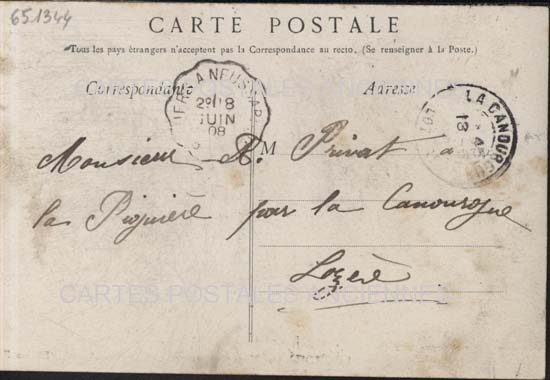 651344
CARTE POSTALE
Tous les pays étrangers n'acceptent pas la Correspondance au recto. (Se renseigner à la Poste.)
Correspondance
Adresse
2º/8
JUIN
08
LA CANOURGUE
LOZ
13
Monsieur R. Privat à
M
la Piginière par la Canourgue
Lozère
CARTES POSTALES ANCIENNES
CARTES POSTALES ANCIENNES